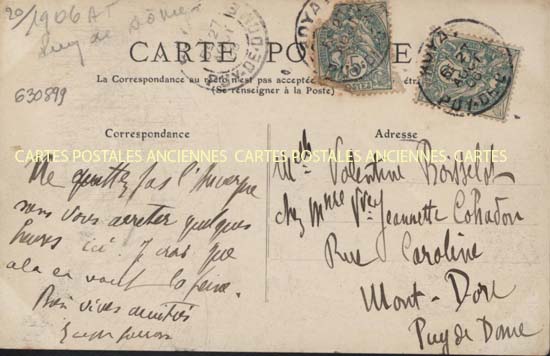 20/1906 AT
Puy de Dôme
630899
CARTE POSTALE
La Correspondance au recto n'est pas acceptée
(Se renseigner à la Poste)
Correspondance
Adresse
CARTES POSTALES ANCIENNES CARTES POSTALES ANCIENNES CARTES POSTALES ANCIENNES
Ne quittez pas l'Auvergne
sans vous arreter quelques
heures ici. Je crois que
cela en vaut la peine.
Bien vives amitiés
Melle Valentine
chez Mme Vve Jeannette Cohadon
Rue Caroline
Mont-Dore
Puy de Dome
ROYAT
PUY-DE-DOME